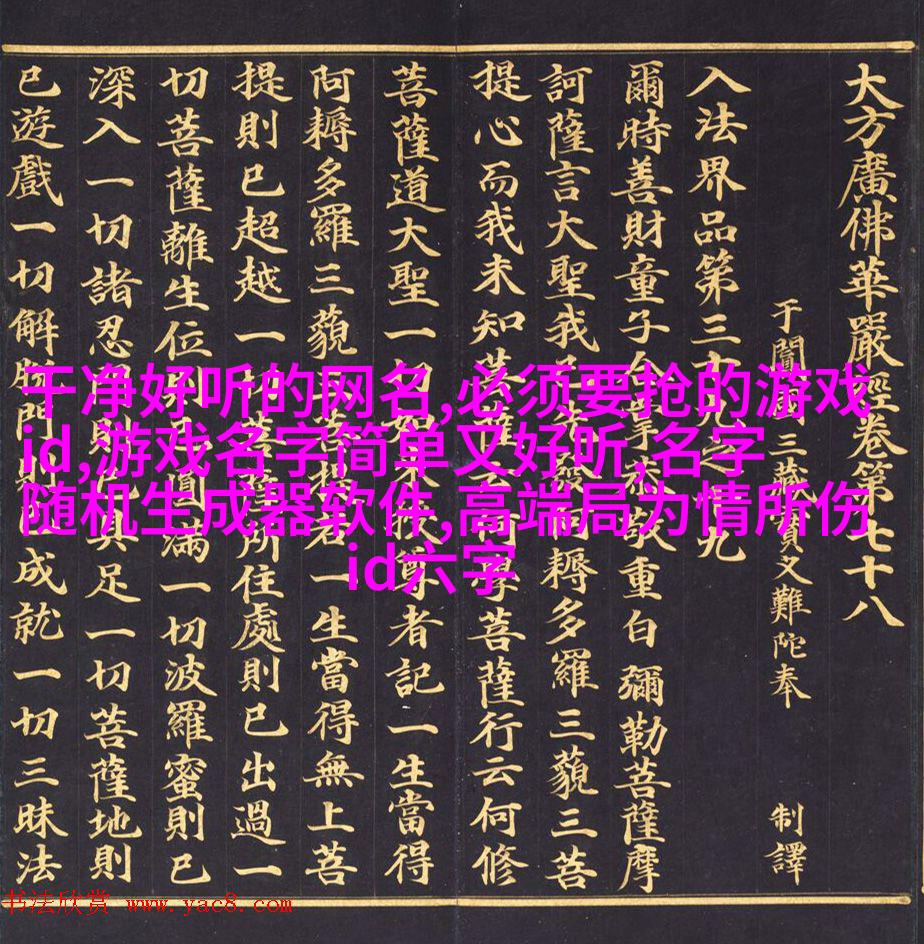 大方廣佛華嚴經卷第七十八
于闐國三藏實叉難陀奉 制譯
入法界品第三十九之十九
爾時善財童子合掌恭敬重白彌勒菩薩摩
訶薩言大聖我已先發阿耨多羅三藐三菩
提心而我未知菩薩云何學菩薩行云何修
菩薩道大聖一切如來授尊者記一生當得
阿耨多羅三藐三菩提若一生當得無上菩
提則已超越一切菩薩所住處則已出過一
切菩薩離生位則已圓滿一切波羅蜜則已
深入一切諸忍門則已具足一切菩薩地則
已遊戲一切解脫門則已成就一切三昧法
干净好听的网名,必须要抢的游戏
id,游戏名字简单又好听,名字
随机生成器软件,高端局为情所伤
id六字
书法欣赏 www.yac8.com